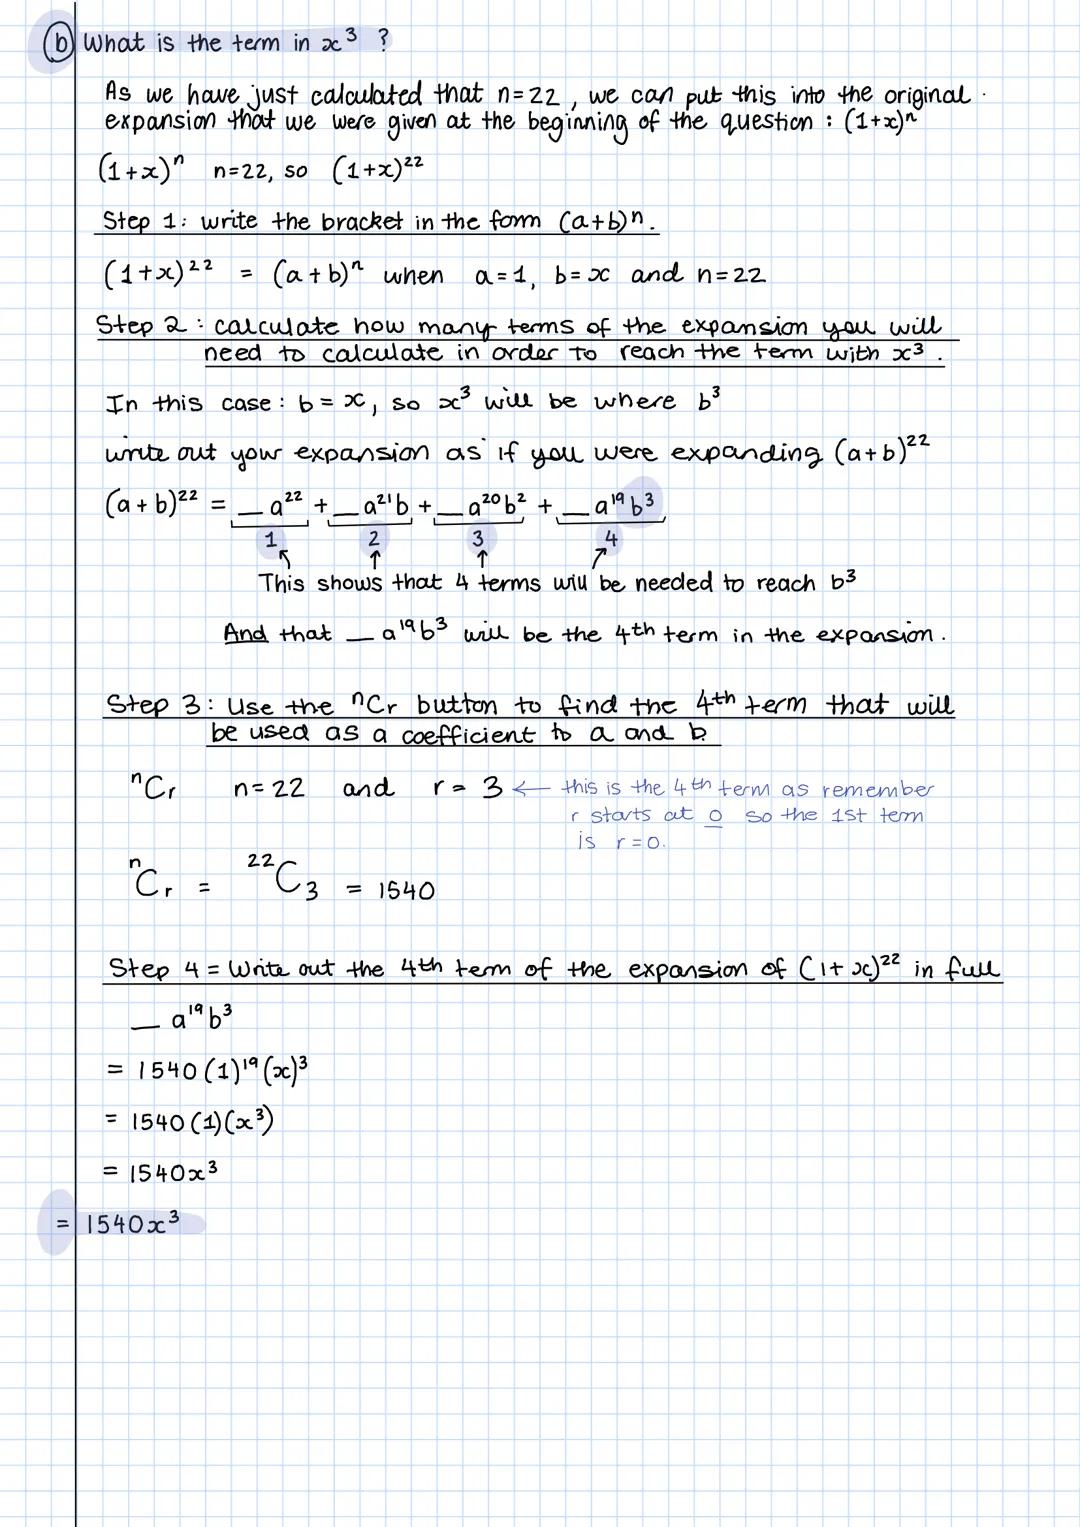 (b) What is the term in x³ ?
As we have just calculated that n=22, we can put this into the original.
expansion that we were given at the beginning of the question : (1+x)ⁿ
(1+x)ⁿ n=22, so (1+x)²²
Step 1: write the bracket in the form (a+b)ⁿ.
(1+x)²² = (a+b)ⁿ when a=1, b=x and n=22
Step 2 : calculate how many terms of the expansion you will
need to calculate in order to reach the term with x³.
In this case : b = x, so x³ will be where b³
write out your expansion as if you were expanding (a+b)²²
(a+b)²² = _ a²² + _ a²¹b + _ a²⁰b² + _ a¹⁹b³
1 2 3 4
This shows that 4 terms will be needed to reach b³
And that _ a¹⁹b³ will be the 4th term in the expansion.
Step 3: Use the ⁿCr button to find the 4th term that will
be used as a coefficient to a and b.
ⁿCr n=22 and r= 3 ← this is the 4th term as remember
r starts at 0 so the 1st term
is r=0.
ⁿCr = ²²C₃ = 1540
Step 4 = Write out the 4th term of the expansion of (1+x)²² in full
_ a¹⁹b³
= 1540(1)¹⁹(x)³
= 1540(1)(x³)
= 1540x³
= 1540x³